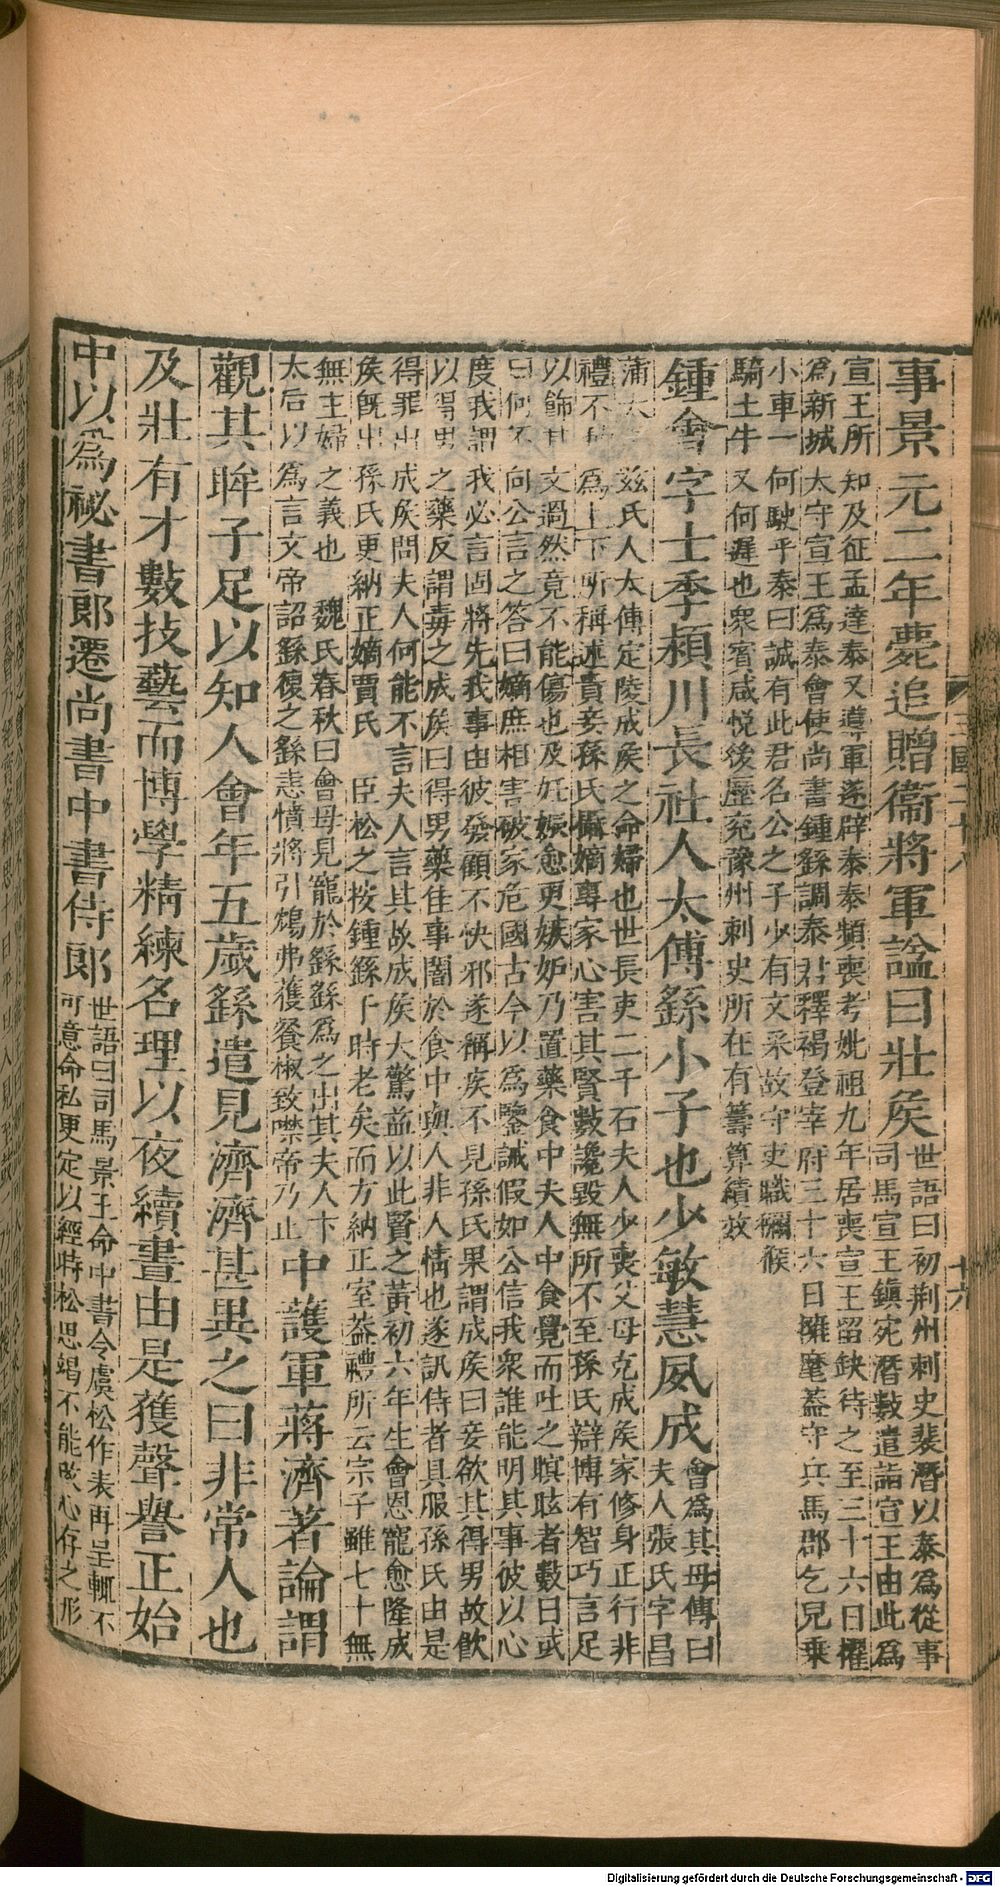 事景元二年薨追贈衞將軍諡曰壯矦
世語曰初荆州刺史裴潛以泰爲從事
司馬宣王鎮宛潛數遣詣宣王由此爲
宣王所知及征孟達泰又導軍遂辟泰泰頻喪考妣祖九年居喪宣王留缺待之至三十六日擢
爲新城太守宣王爲泰會使尚書鍾繇調泰君釋褐登宰府三十六日擁麾蓋守兵馬郡乞兒乗
小車一何駛乎泰曰誠有此君名公之子少有文采故守吏職獼猴
騎土牛又何遲也衆賔咸悅後歷兖豫州刺史所在有籌算績效
鍾會字士季潁川長社人太傅繇小子也少敏慧夙成
會爲其母傳曰
夫人張氏字昌
蒲太兹氏人太傅定陵成矦之命婦也世長吏二千石夫人少喪父母充成矦家修身正行非
禮不爲上下所稱述貴妾孫氏攝嫡專家心害其賢數讒毀無所不至孫氏辯博有智巧言足
以飾其文過然竟不能傷也及妊娠愈更嫉妒乃置藥食中夫人中食覺而吐之瞑眩者數日或
曰何不向公言之答曰嫡庶相害破家危國古今以爲鑒誡假如公信我衆誰能明其事彼以心
度我謂我必言固將先我事由彼發顧不快邪遂稱疾不見孫氏果謂成矦曰妾欲其得男故飲
以得男之藥反謂毒之成矦曰得男藥佳事闇於食中與人非人情也遂訊侍者具服孫氏由是
得罪出成矦問夫人何能不言夫人言其故成矦大驚益以此賢之黃初六年生會恩寵愈隆成
矦旣出孫氏更納正嫡賈氏 臣松之按鍾繇于時老矣而方納正室葢禮所云宗子雖七十無
無主婦之義也 魏氏春秋曰會母見寵於繇繇爲之出其夫人卞
太后以爲言文帝詔繇復之繇恚憤將引鴆弗獲餐椒致噤帝乃止
中護軍蔣濟著論謂
觀其眸子足以知人會年五歲繇遣見濟濟甚異之曰非常人也
及壯有才數技藝而博學精練名理以夜續晝由是獲聲譽正始
中以爲祕書郎遷尚書中書侍郎
世語曰司馬景王命中書令虞松作表再呈輒不
可意命松更定以經時松思竭不能改心存之形
Digitalisierung gefördert durch die Deutsche Forschungsgemeinschaft - DFG